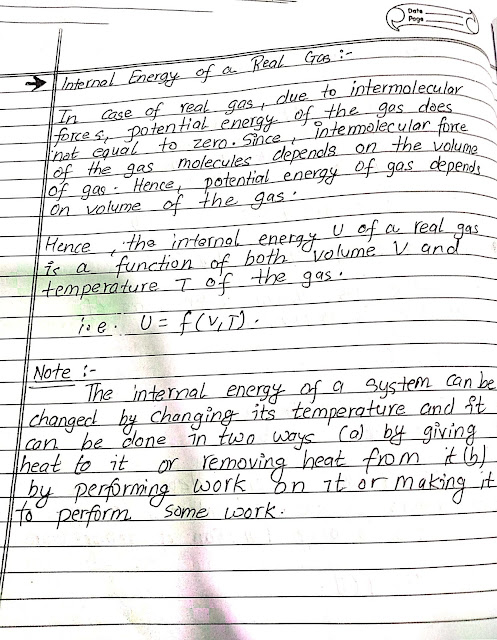 Date
Page
→ Internal Energy of a Real Gas :-
In case of real gas, due to intermolecular
forces, potential energy of the gas does
not equal to zero. Since, intermolecular force
of the gas molecules depends on the volume
of gas. Hence, potential energy of gas depends
on volume of the gas.
Hence, the internal energy U of a real gas
is a function of both volume V and
temperature T of the gas.
i.e. U = f(V,T).
Note :-
The internal energy of a system can be
changed by changing its temperature and it
can be done in two ways (a) by giving
heat to it or removing heat from it (b)
by performing work on it or making it
to perform some work.